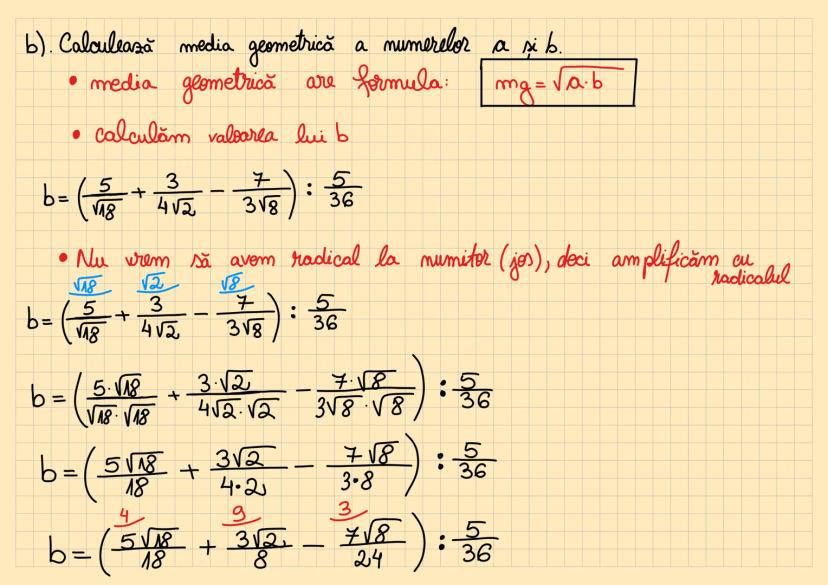 b). Calculează media geometrică a numerelor a și b.
• media geometrică are formula: mg = √a·b
• calculăm valoarea lui b
b = (5/√18 + 3/4√2 − 7/3√8) : 5/36
• Nu vrem să avem radical la numitor (jos), deci amplificăm cu
radicalul
√18 √2 √8
b = (5/√18 + 3/4√2 − 7/3√8) : 5/36
b = (5·√18/√18·√18 + 3·√2/4√2·√2 − 7·√8/3√8·√8) : 5/36
b = (5√18/18 + 3√2/4·2 − 7√8/3·8) : 5/36
4 9 3
b = (5√18/18 + 3√2/8 − 7√8/24) : 5/36